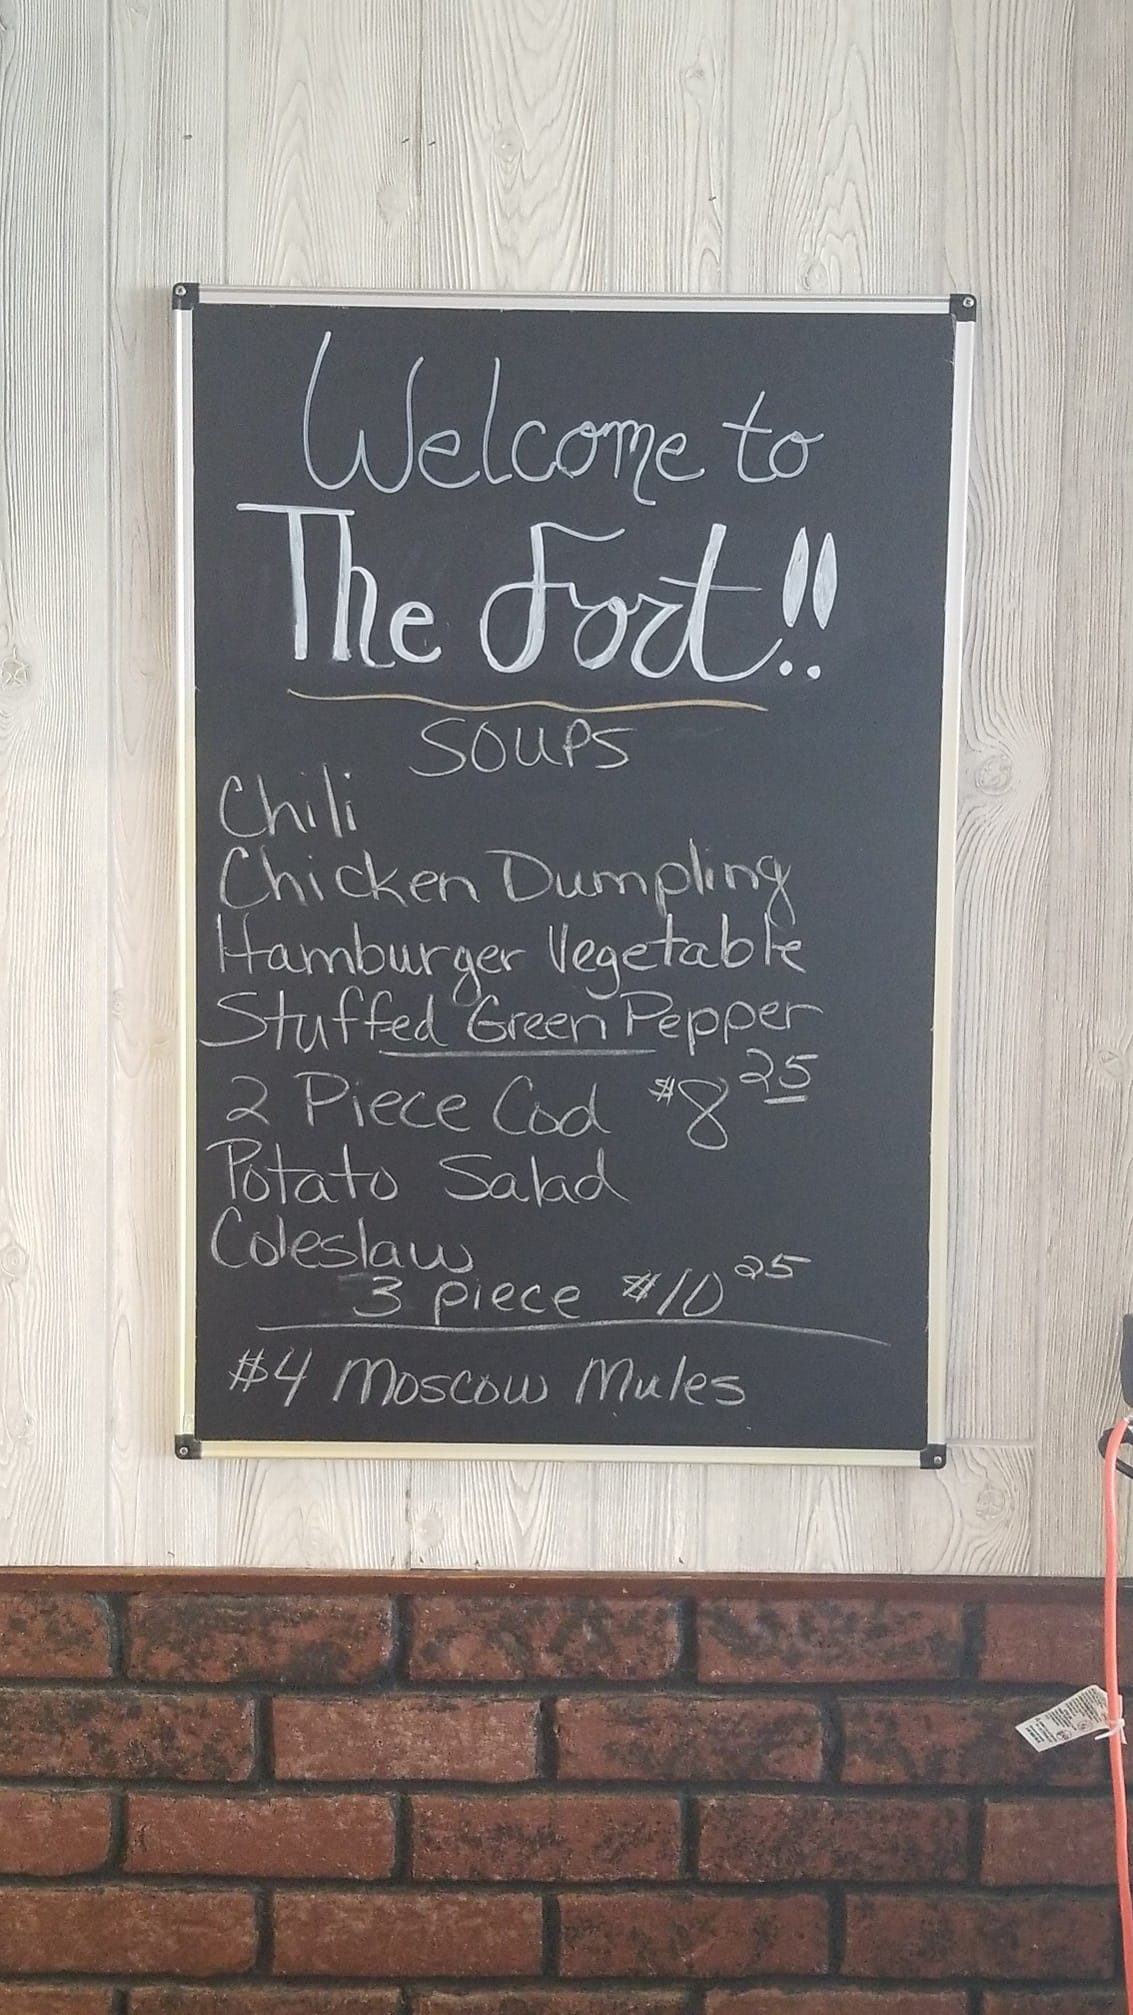 Welcome to
The Fort!!
SOUPS
Chili
Chicken Dumpling
Hamburger Vegetable
Stuffed Green Pepper
2 Piece Cod $8 25
Potato Salad
Coleslaw
3 piece $10 25
$4 Moscow Mules